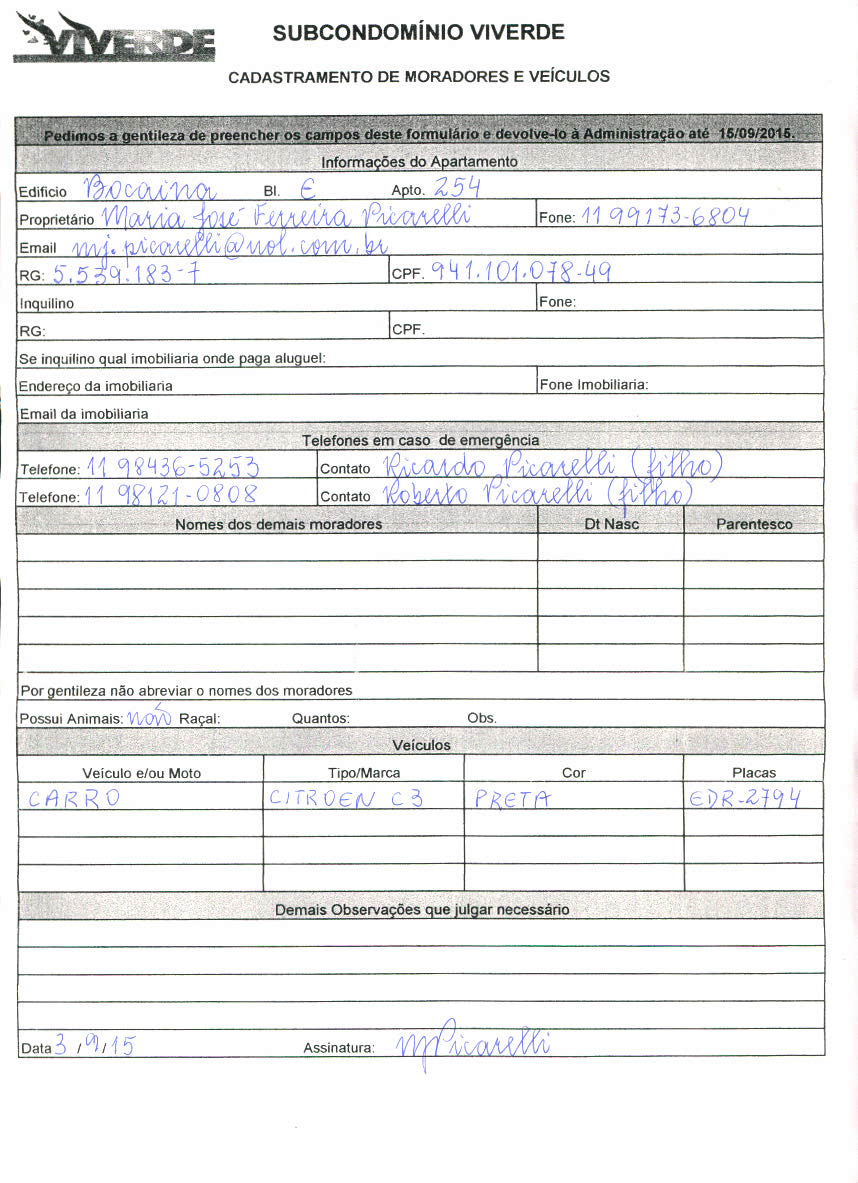 VIVERDE
SUBCONDOMÍNIO VIVERDE
CADASTRAMENTO DE MORADORES E VEÍCULOS
Pedimos a gentileza de preencher os campos deste formulário e devolve-lo à Administração até 15/09/2015.
Informações do Apartamento
Edificio Bocaina Bl. E Apto. 254
Proprietário Maria José Ferreira Picarelli Fone: 11 99173-6804
Email mj.picarelli@uol.com.br
RG: 5.539.183-7 CPF. 941.101.078-49
Inquilino Fone:
RG: CPF.
Se inquilino qual imobiliaria onde paga aluguel:
Endereço da imobiliaria Fone Imobiliaria:
Email da imobiliaria
Telefones em caso de emergência
Telefone: 11 98436-5253 Contato Ricardo Picarelli (filho)
Telefone: 11 98121-0808 Contato Roberto Picarelli (filho)
Nomes dos demais moradores Dt Nasc Parentesco
Por gentileza não abreviar o nomes dos moradores
Possui Animais: não Raçal: Quantos: Obs.
Veículos
Veículo e/ou Moto Tipo/Marca Cor Placas
CARRO CITROEN C3 PRETA EDR-2794
Demais Observações que julgar necessário
Data 3 / 9 / 15 Assinatura: MPicarelli